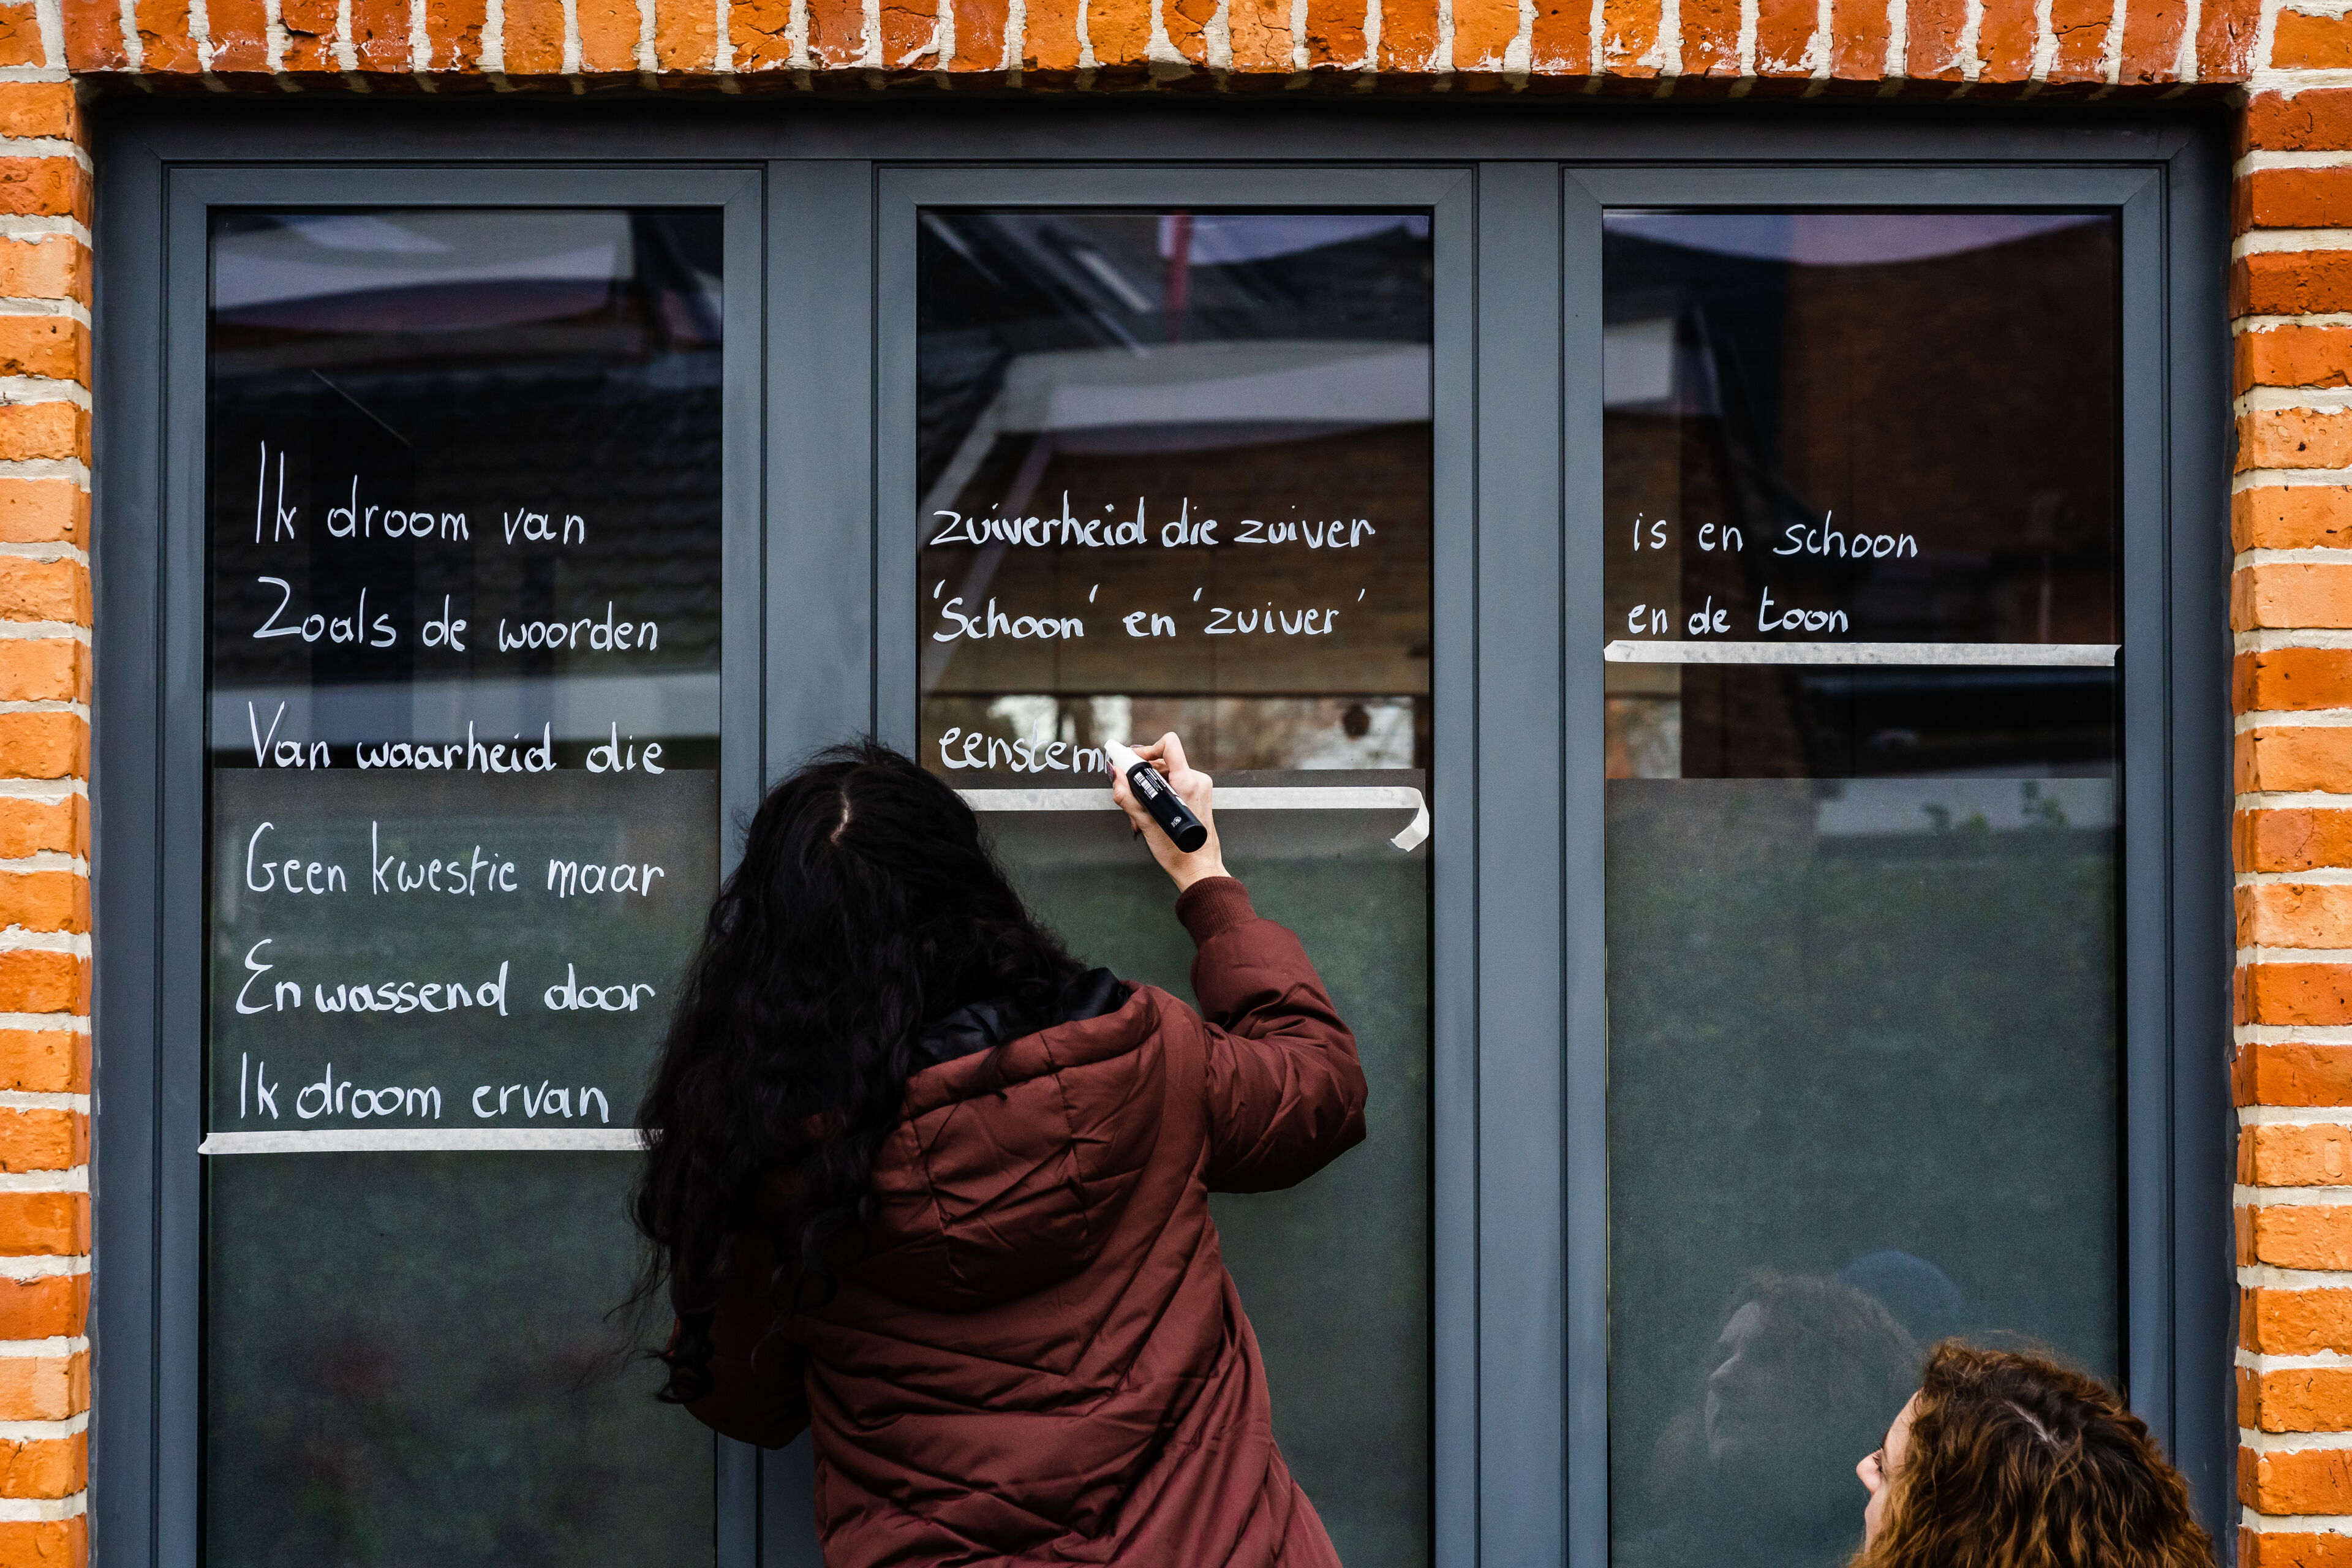 Ik droom van zuiverheid die zuiver is en schoon
Zoals de woorden 'Schoon' en 'zuiver' en de toon
Van waarheid die eenstem
Geen kwestie maar
En wassend door
Ik droom ervan